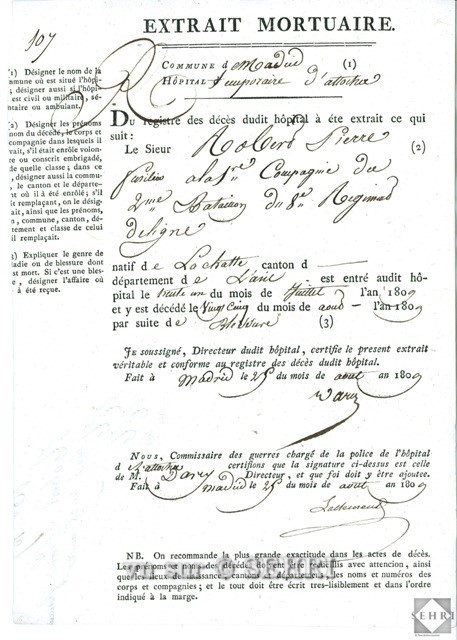 107
EXTRAIT MORTUAIRE.
COMMUNE d e Madrid (1)
HÔPITAL temporaire d'attocha
(1) Désigner le nom de la
commune où est situé l'hôpi-
; désigner aussi si l'hôpi-
est civil ou militaire, sé-
ntaire ou ambulant.
(2) Désigner les prénoms
nom du décédé, le corps et
compagnie dans lesquels il
rvait, s'il était enrôlé volon-
re ou conscrit embrigadé,
de quelle classe ; dans ce
, désigner aussi la commu-
, le canton et le départe-
nt où il a été enrôlé ; s'il
it remplaçant, on le désig-
ait, ainsi que les prénoms,
m, commune, canton, dé-
rtement et classe de celui
il remplaçait.
3) Expliquer le genre de
ladie ou de blessure dont
est mort. Si c'est une bles-
e, désigner l'affaire où
a été reçue.
DU registre des décès dudit hôpital à été extrait ce qui
suit :
Le Sieur Robert Pierre (2)
fusilier a la 1re Compagnie du
2me Bataillon du 8e Regiment
de ligne
natif de Lachatte canton d
département de L'ain est entré audit hô-
pital le trente un du mois de Juillet l'an 1809
et y est décédé le vingt Cinq du mois de aout l'an 1809
par suite de Blessure (3)
JE soussigné, Directeur dudit hôpital, certifie le present extrait
véritable et conforme au registre des décès dudit hôpital.
Fait à Madrid le 25 du mois de aout an 1809
NOUS, Commissaire des guerres chargé de la police de l'hôpital
d'attocha certifions que la signature ci-dessus est celle
de M. Directeur, et que foi doit y être ajoutée.
Fait à Madrid le 25 du mois de aout an 1809
Lallemand
NB. On recommande la plus grande exactitude dans les actes de décès.
Les prénoms et noms du décédé doivent être recueillis avec attencion, ainsi
que les lieux de naissance, cantons, départemens, les noms et numéros des
corps et compagnies ; et le tout doit être écrit tres-lisiblement et dans l'ordre
indiqué à la marge.
vu sur © SEHRI
SEHRI